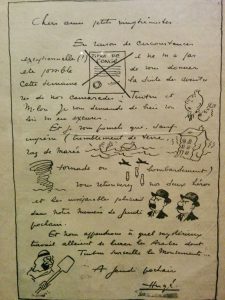 Chers amis petits vingtièmistes
En raison de circonstances
exceptionnelles (!) il ne m'a pas
été possible de vous donner
cette semaine la suite des aventu
res de nos camarades : Tintin et
Milou. Je vous demande de bien vou
loir m'en excuser.
Et je vous promets que, sauf
imprévu, tremblement de terre,
raz de marée
tornade ou bombardement,
vous retrouverez nos deux héros
et les inséparables policiers
dans notre numéro de jeudi
prochain.
Et nous apprendrons à quel mystérieux
travail allaient se livrer les Arabes dont
Tintin surveille le
A jeudi prochain
Hergé